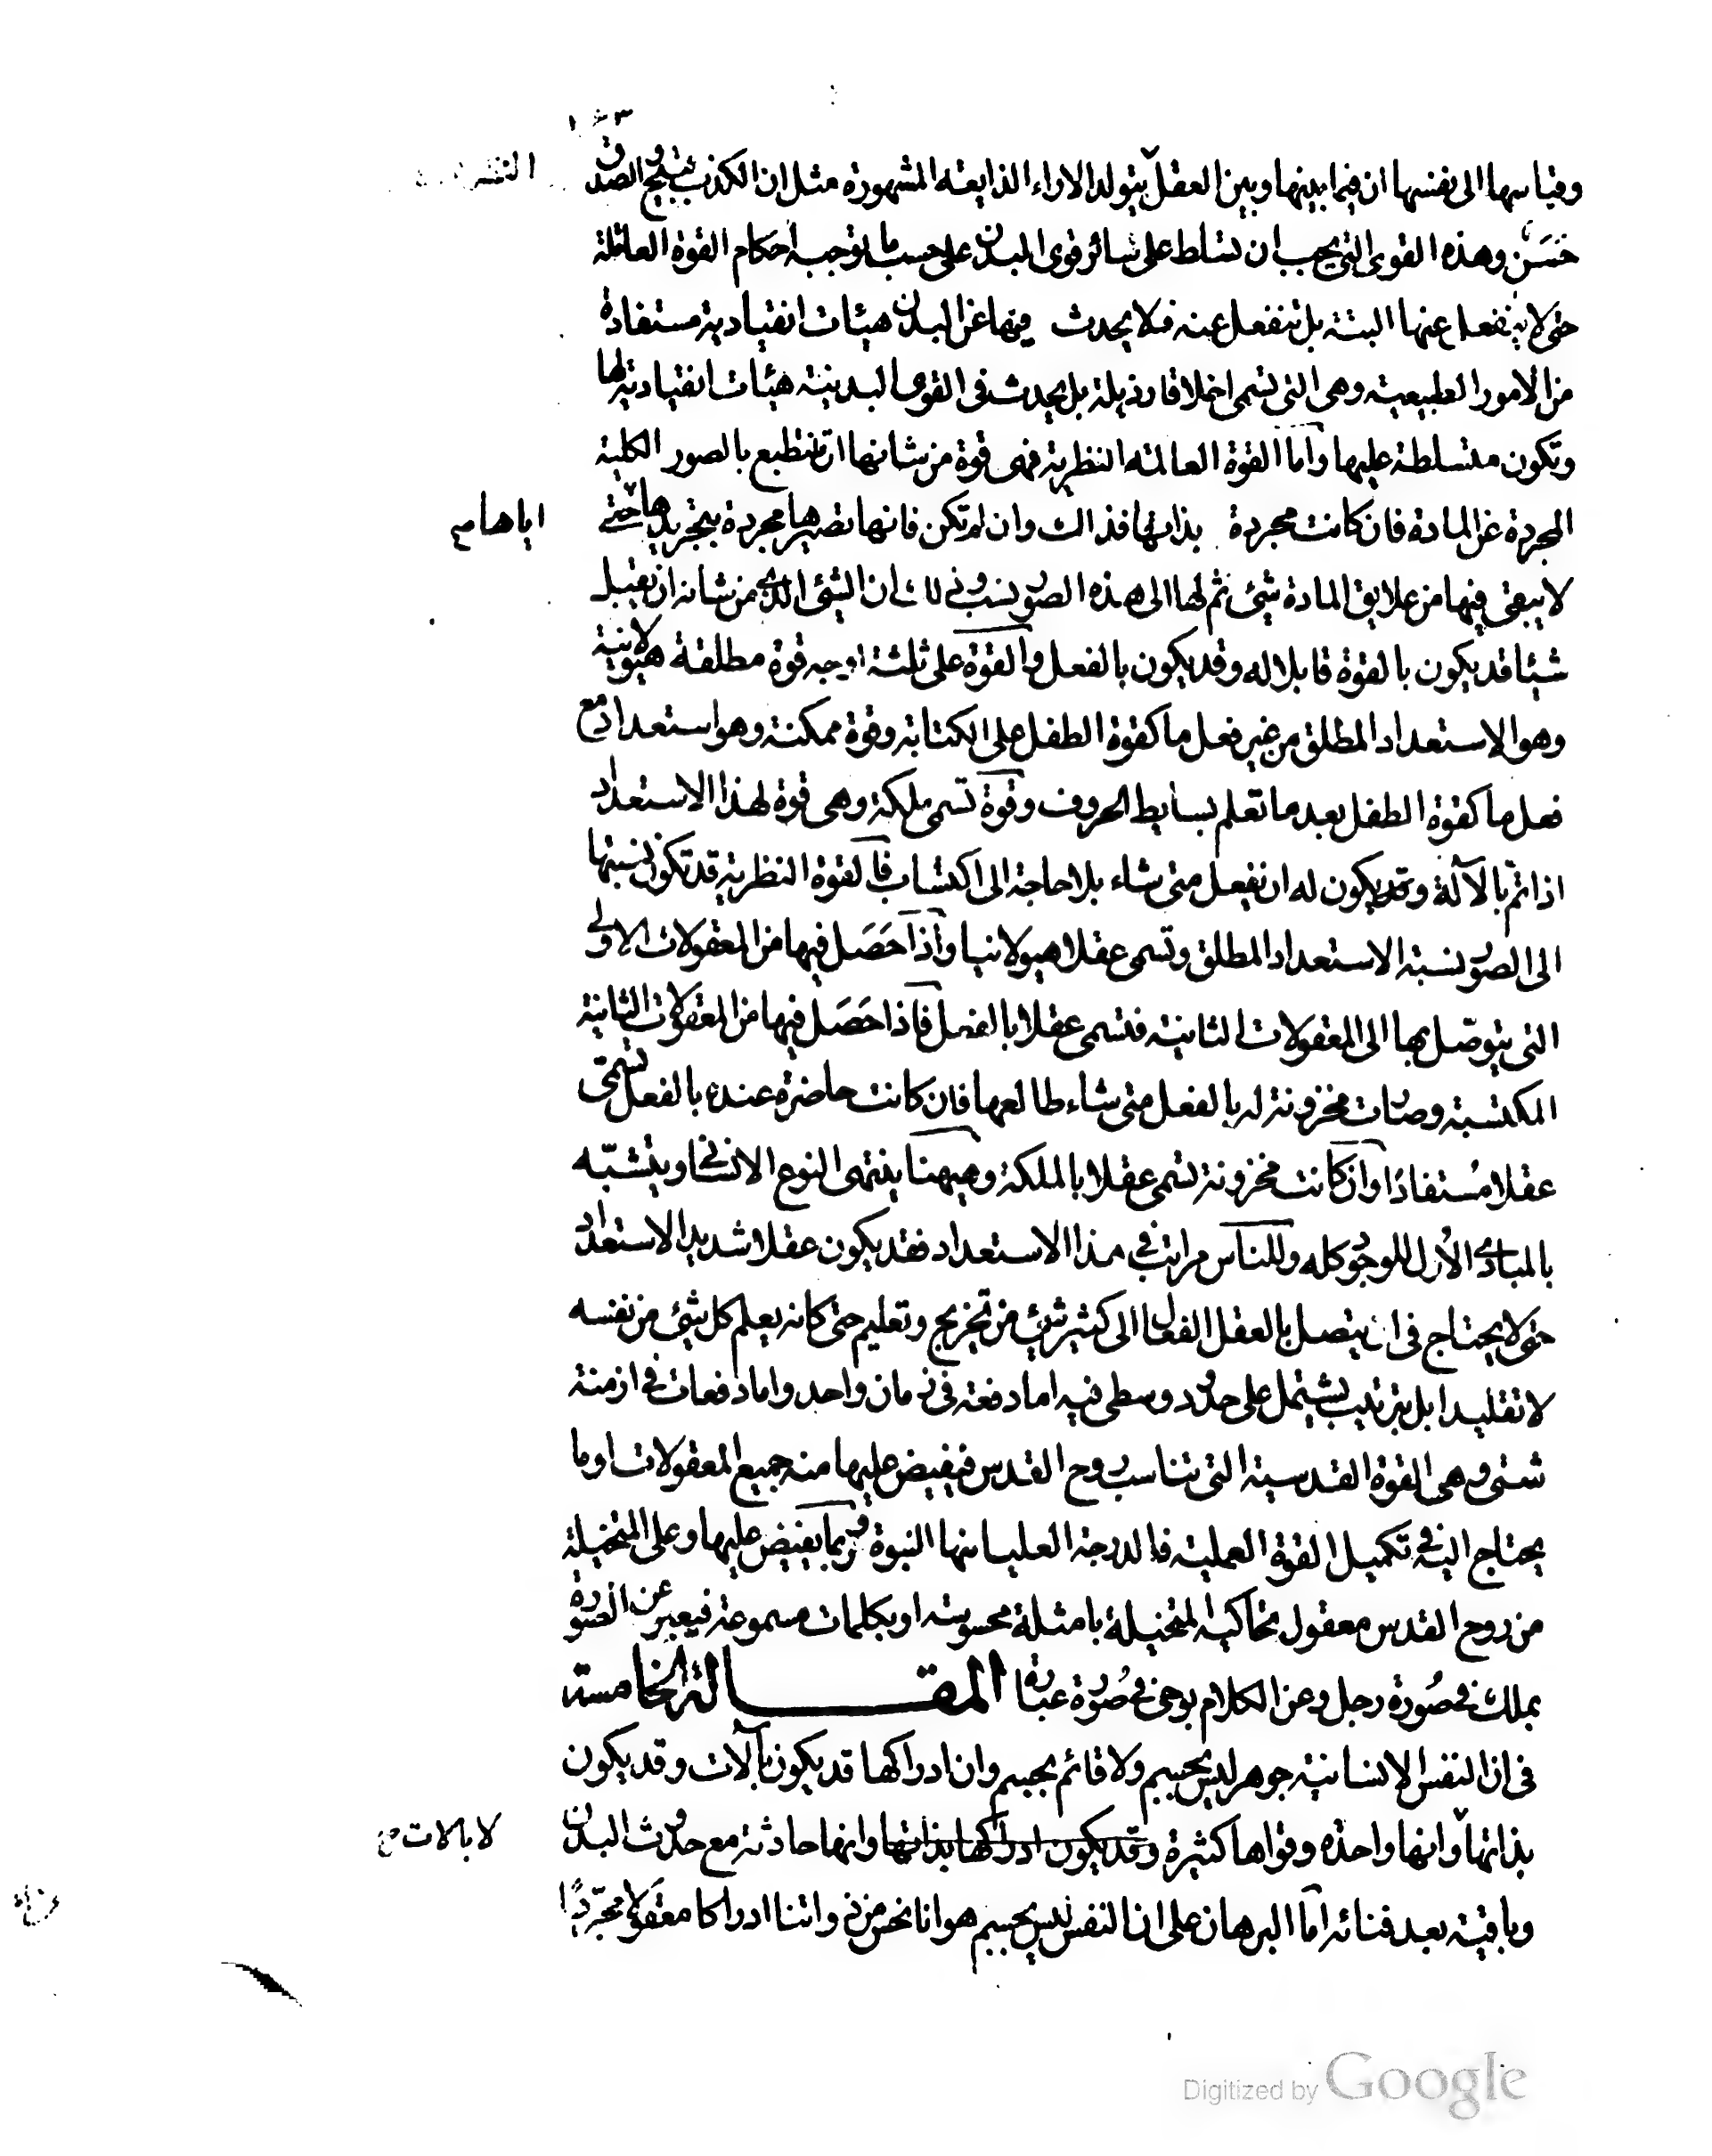 ١٥٣
وقياسها الى نفسها ان فيما بينها وبين العقل يتولد الاراء الذايعه المشهورة مثل ان الكذب قبيح والصدق
حَسَن وهذه القوى التي يجب ان تسلط على سائر قوى البدن على حسب ما يوجبه احكام القوة العاقلة
حتى لا ينفعل عنها البتة بل تنفعل عنه فلا يحدث فيها عن البدن هيئات انقيادية مستفادة
من الامور الطبيعية وهي التي تسمى اخلاقا رذيلة بل يحدث في القوى البدنية هيئات انقيادية لها
وتكون متسلطة عليها واما القوة العالمة النظرية فهي قوة من شانها ان تنطبع بالصور الكلية
المجردة عن المادة فان كانت مجردة بذاتها فذاك وان لم تكن فانها تصيرها مجردة بتجريدها حتى
اياها مح
لا يبقى فيها من علايق المادة شئ ثم لها الى هذه الصور نسب وذلك ان الشئ الذي من شانه ان يقبل
شيئا قد يكون بالقوة قابلا له وقد يكون بالفعل والقوة على ثلثة اوجه قوة مطلقة هيولانية
وهو الاستعداد المطلق من غير فعل ما كقوة الطفل على الكتابة وقوة ممكنة وهو استعداد مع
فعل ما كقوة الطفل بعد ما تعلم بسايط الحروف وقوة تسمى ملكة وهي قوة لهذا الاستعداد
اذا تم بالآلة وقد يكون له ان يفعل متى شاء بلا حاجة الى اكتساب فالقوة النظرية قد تكون نسبتها
الى الصور نسبة الاستعداد المطلق وتسمى عقلا هيولانيا واذا حَصَل فيها من المعقولات الاولى
التي يتوصّل بها الى المعقولات الثانية فتسمى عقلا بالفعل فاذا حَصَل فيها من المعقولات الثانية
المكتسبة وصارت مخزونة له بالفعل متى شاء طالعها فان كانت حاضرة عنده بالفعل تسمّى
عقلا مُستفادًا وان كانت مخزونة تسمى عقلا بالملكة وهيهنا ينتهى النوع الانسانى ويتشبّه
بالمبادي الأول للوجود كله وللناس مراتب في هذا الاستعداد فقد يكون عقلا شديد الاستعداد
حتى لا يحتاج في ان يتصل بالعقل الفعال الى كثير شئ من تخريج وتعليم حتى كانه يعلم كل شئ من نفسه
لا تقليدا بل بترتيب يشتمل على حدود وسطى فيه اما دفعة في زمان واحد واما دفعات في ازمنة
شتى وهي القوة القدسية التي تناسب روح القدس فيفيض عليها منه جميع المعقولات او ما
يحتاج اليه في تكميل القوة العملية فالدرجة العليا منها النبوة فربما يفيض عليها وعلى المتخيلة
من روح القدس معقول تحاكيه المتخيلة بامثلة محسوسة او بكلمات مسموعة فيعبر عن الصورة
بملك في صُورة رجل وعن الكلام بوحي في صُورة عبارة المقالة الخامسة
في ان النفس الانسانية جوهر ليس بجسم ولا قائم بجسم وان ادراكها قد يكون بآلات وقد يكون
بذاتها وانها واحدة وقواها كثيرة وقد يكون ادراكها بذاتها وانها حادثة مع حدوث البدن
لا بالات صح
وباقية بعد فنائه اما البرهان على ان النفس ليس بجسم هو انا نحس من ذواتنا ادراكا معقولا مجرّدًا
Digitized by Google